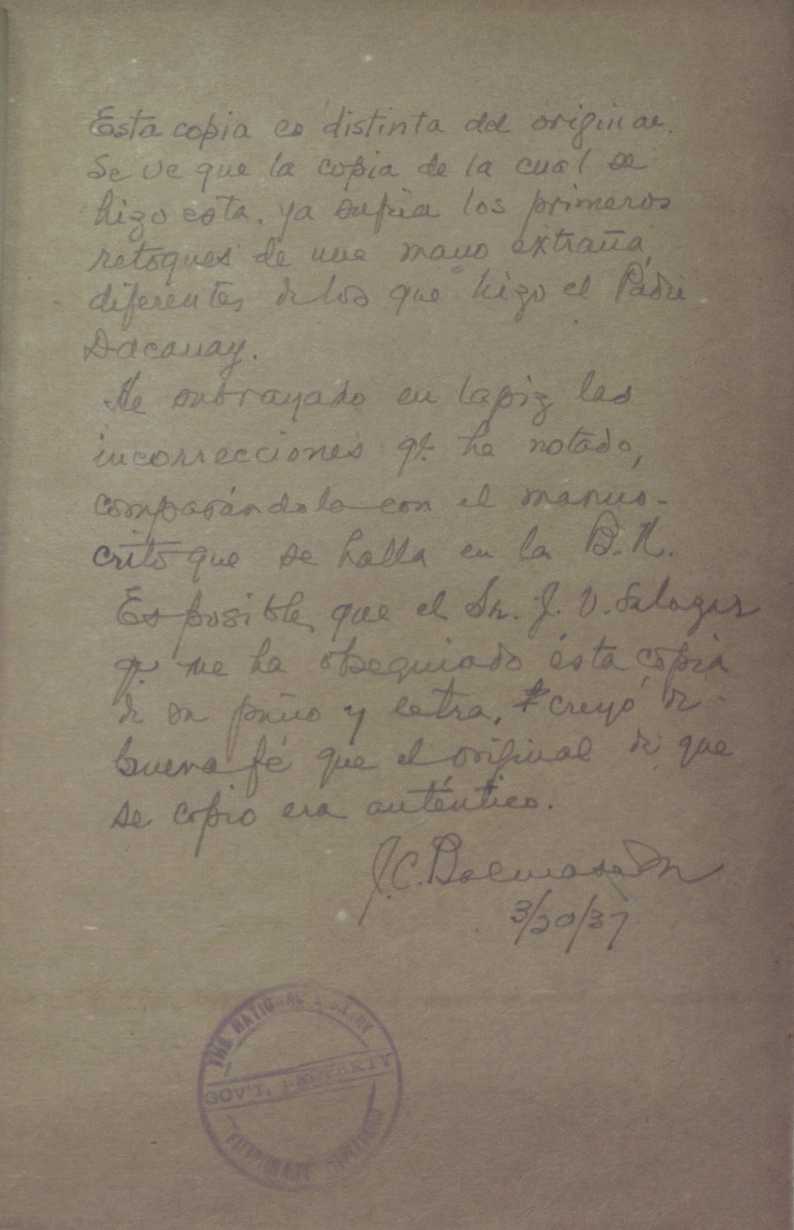 Esta copia es distinta del original.
Se ve que la copia de la cual se
hizo esta, ya sufria los primeros
retoques de una mano extraña,
diferentes de los que hizo el Padre
Dacanay.
He subrayado en lapiz las
incorrecciones qe. he notado,
comparándola con el manus-
crito que se halla en la B. N.
Es posible, que el Sr. J. V. Salazar
qe. me ha obsequiado ésta copia
de su puño y letra, creyó de
buena fé que el original de que
se copio era auténtico.
J. C. Balmaseda
3/20/37
THE NATIONAL